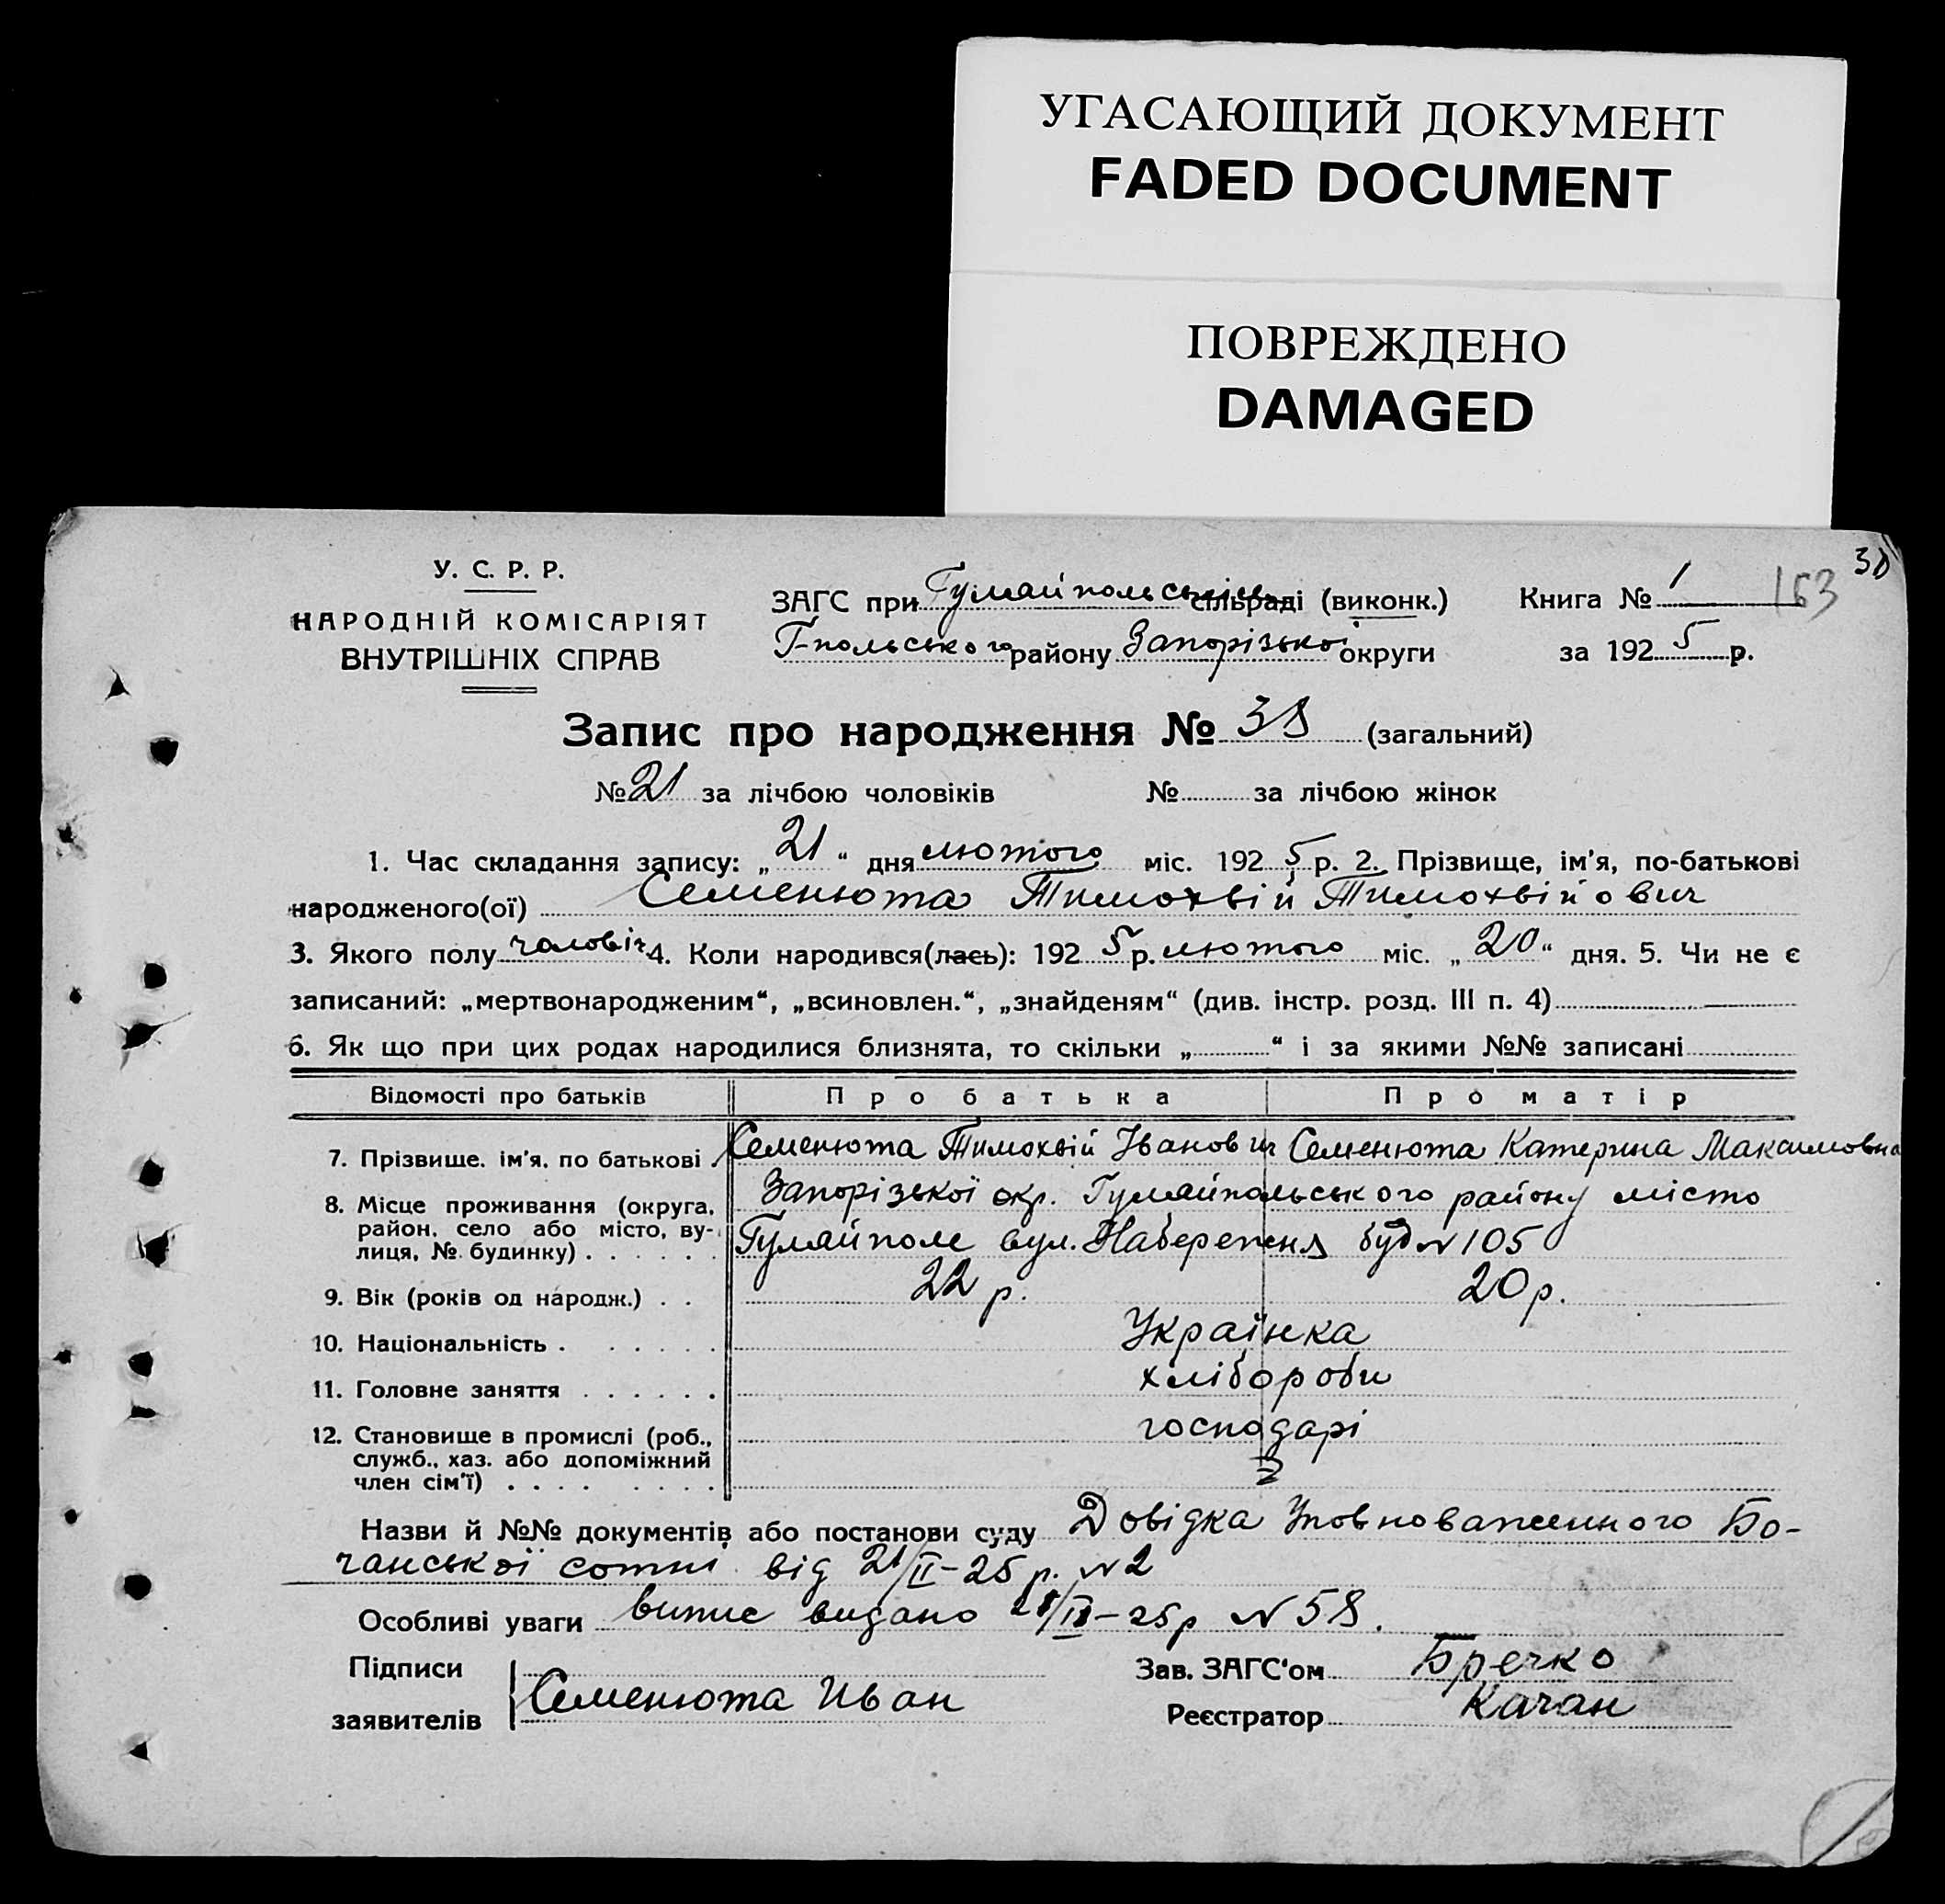 УГАСАЮЩИЙ ДОКУМЕНТ
FADED DOCUMENT
ПОВРЕЖДЕНО
DAMAGED
38
У. С. Р. Р.
НАРОДНІЙ КОМІСАРІЯТ
ВНУТРІШНІХ СПРАВ
ЗАГС при Гуляйпольськім сільраді (виконк.)
Г-польського району Запорізької округи
Книга № 1 163
за 1925 р.
Запис про народження № 38 (загальний)
№ 21 за лічбою чоловіків № за лічбою жінок
1. Час складання запису: „21“ дня лютого міс. 1925 р. 2. Прізвище, ім'я, по-батькові
народженого(ої) Семенюта Тимохвій Тимохвійович
3. Якого полу чоловіч 4. Коли народився(лась): 1925 р. лютого міс. „20“ дня. 5. Чи не є
записаний: „мертвонародженим“, „всиновлен.“, „знайденям“ (див. інстр. розд. III п. 4)
6. Як що при цих родах народилися близнята, то скільки „ “ і за якими №№ записані
Відомості про батьків Про батька Про матір
7. Прізвище. ім'я. по батькові Семенюта Тимохвій Іванович Семенюта Катерина Максимовна
8. Місце проживання (округа, Запорізької окр. Гуляйпольського району місто
район, село або місто, ву-
лиця, №. будинку) Гуляйполе вул. Набережня буд № 105
9. Вік (років од народж.) 22 р. 20 р.
10. Національність Українка
11. Головне заняття хлібороби
12. Становище в промислі (роб., господарі
служб., хаз. або допоміжний
член сім'ї)
Назви й №№ документів або постанови суду Довідка Уповноваженного Бо-
чанської сотні від 21/II-25 р. № 2
Особливі уваги випис видано №58.
Підписи
заявителів Семенюта Иван
Зав. ЗАГС'ом Бречко
Реєстратор Качан